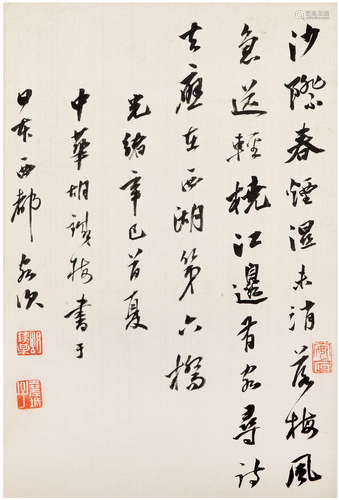 沙際春煙溼未消落梅風
急送輕橈江邊有客尋詩
去應在西湖第六橋
光緒辛巳首夏
中華胡鐵梅書于
日本西都客次